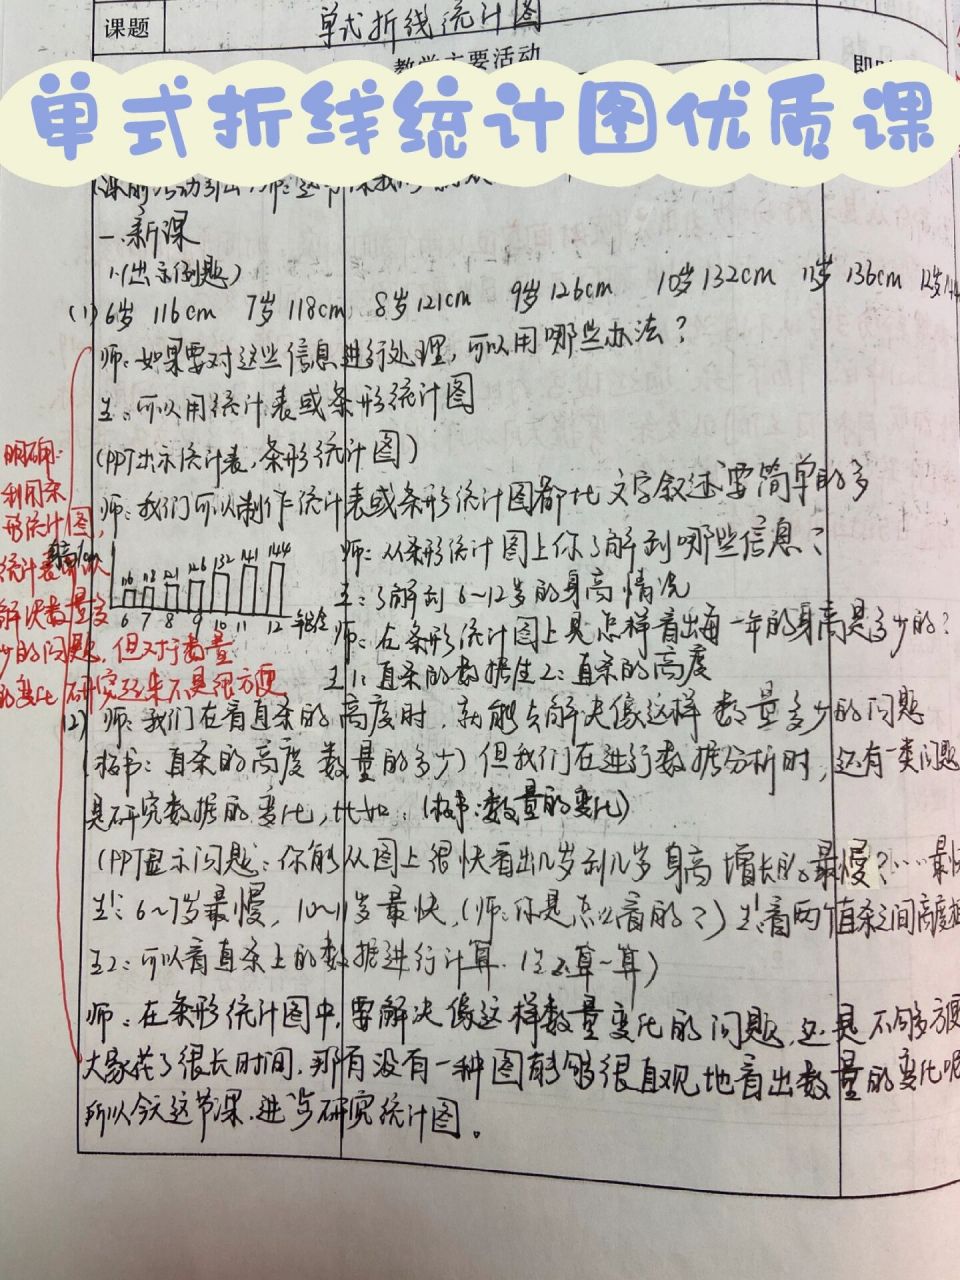 课题 单式折线统计图
教学主要活动
单式折线统计图优质课
一.新课
1.(出示例题)
(1)6岁 116cm 7岁 118cm 8岁 121cm 9岁 126cm 10岁 132cm 11岁 136cm 12岁
师:如果要对这些信息进行处理,可以用哪些办法?
生:可以用统计表或条形统计图
(PPT出示统计表,条形统计图)
师:我们可以制作统计表或条形统计图都比文字叙述要简单的多
师:从条形统计图上你了解到哪些信息?
生:了解到6~12岁的身高情况
师:在条形统计图上是怎样看出每一年的身高是多少的?
生1:直条的数据 生2:直条的高度
116 118 121 126 132 141 144
6 7 8 9 10 11 12 年龄
明确:
利用条
形统计图,
统计表
解决数量多
少的问题,但对于数量
的变化研究起来不是很方便
(2) 师:我们在看直条的高度时,就能去解决像这样数量多少的问题
(板书:直条的高度 数量的多少)但我们在进行数据分析时,还有一类问题
是研究数据的变化,比如:(板书:数量的变化)
(PPT显示问题:你能从图上很快看出几岁到几岁身高增长的最慢?……最快
生1:6~7岁最慢,10~11岁最快,(师:你是怎么看的?)生1:看两个直条之间高度
生2:可以看直条上的数据进行计算.(生算一算)
师:在条形统计图中,要解决像这样数量变化的问题,还是不够方便
大家花了很长时间,那有没有一种图能够很直观地看出数量的变化呢
所以今天这节课.进一步研究统计图。